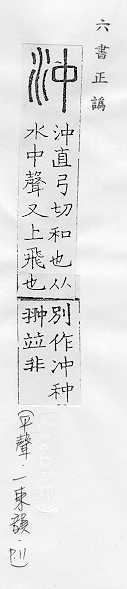 六書正譌
沖
沖直弓切和也从
水中聲又上飛也
別作冲种
翀竝非
(平聲.一東韻.P.11)